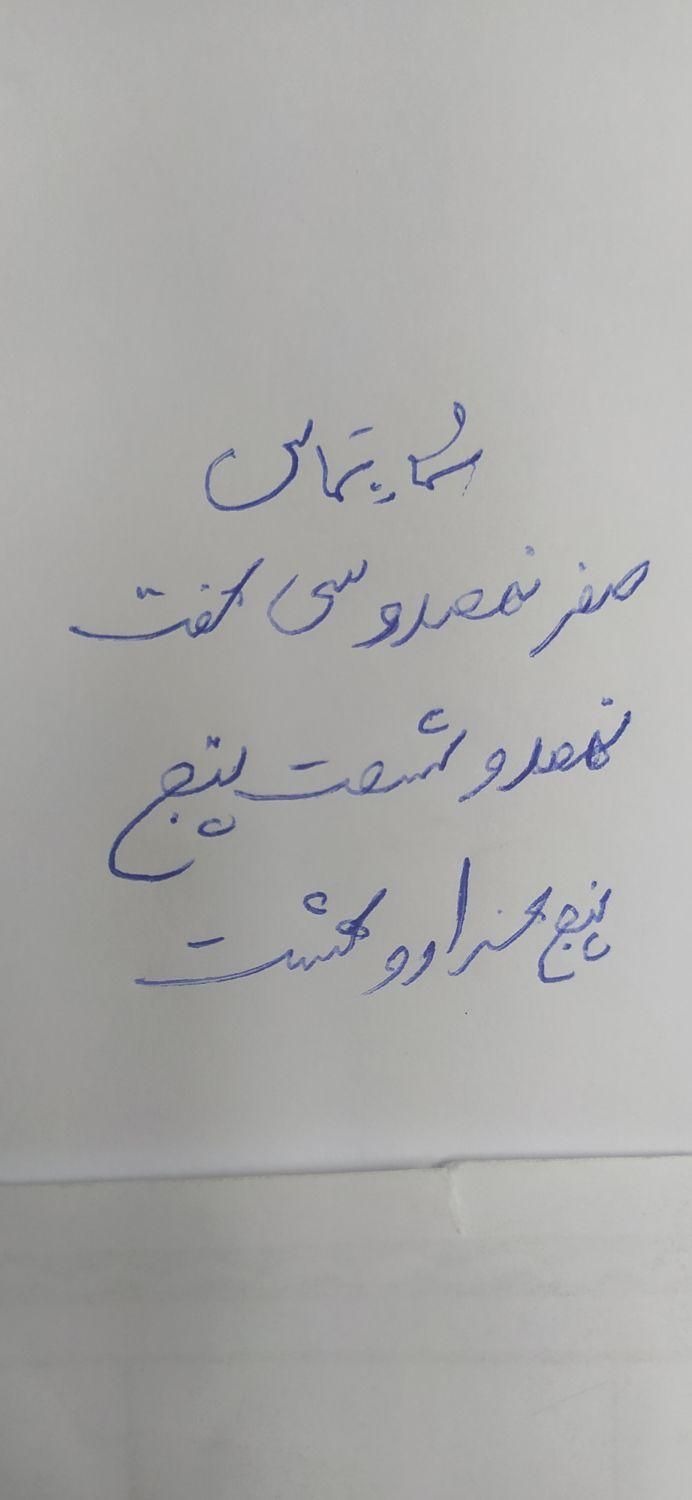 شما بتماس
صفر نهصدو سی هفت
نهصدو شصت پنج
پنج هزارو هشت